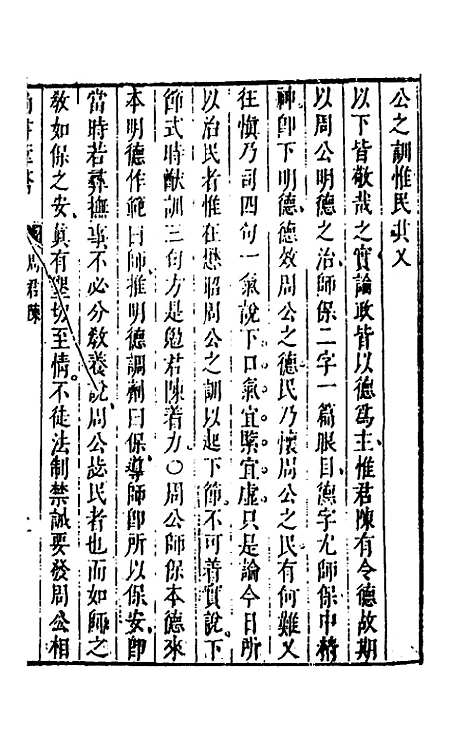 公之訓惟民其乂
以下皆敬哉之實論政皆以德爲主惟君陳有令德故期
以周公明德之治師保二字一篇眼目德字尤師保中精
神卽下明德德效周公之德民乃懷周公之民有何難乂
往慎乃司四句一氣說下口氣宜緊宜虛只是論今日所
以治民者惟在懋昭周公之訓以起下節不可着實說下
節式時猷訓三句方是勉君陳着力○周公師保本德來
本明德作範曰師推明德調劑曰保導師卽所以保安卽
當時若彞撫事不必分敎養說周公誌民者也而如師之
敎如保之安眞有堲切至情不徒法制禁誡要發周公相
周君陳